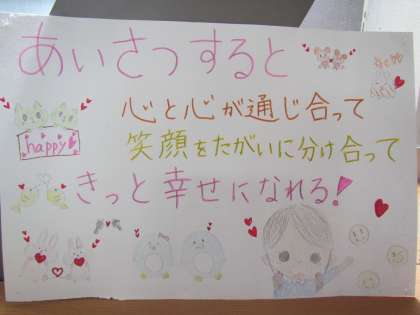 あいさつすると
心と心が通じ合って
happy
笑顔をたがいに分け合って
きっと幸せになれる!